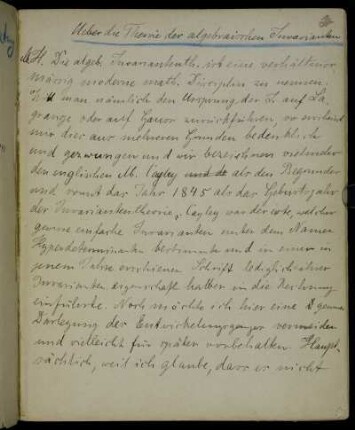 Ueber die Theorie der algebraischen Invarianten
M. H. Die algeb. Invariantenth. ist eine verhältniss
mässig moderne math. Disciplin zu nennen.
Will man nämlich den Ursprung der I. auf La
grange oder auf Gauss zurückführen, so erscheint
mir dies aus mehreren Gründen bedenklich
und gezwungen und wir bezeichnen vielmehr
den englischen M. Cayley als den Begründer
und somit das Jahr 1845 als das Geburtsjahr
der Invariantentheorie. Cayley war der erste, welcher
gewisse einfache Invarianten unter dem Namen
Hyperdeterminanten bestimmte und in einer in
jenem Jahre erschienenen Schrift lediglich ihrer
Invarianten eigenschaft halber in die Rechnung
einführte. Noch möchte ich hier eine
Darlegung des Entwickelungsganges vermeiden
und vielleicht für später vorbehalten. Haupt
sächlich, weil ich glaube, dass es nicht